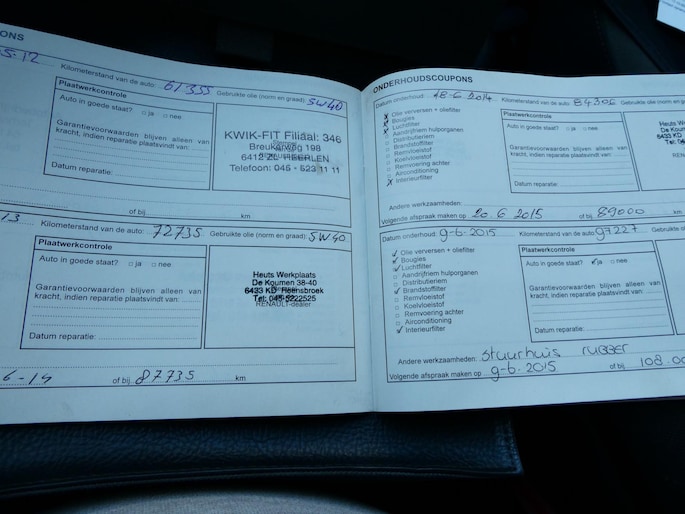 ONS
5-12
Kilometerstand van de auto: 61.355 Gebruikte olie (norm en graad): 5W40
Plaatwerkcontrole
Auto in goede staat? □ ja □ nee
Garantievoorwaarden blijven alleen van
kracht, indien reparatie plaatsvindt van:
Datum reparatie:
KWIK-FIT Filiaal: 346
Breukerweg 198
6412 ZL HEERLEN
Telefoon: 045 - 523 11 11
of bij km
13 Kilometerstand van de auto: 72735 Gebruikte olie (norm en graad): 5W40
Plaatwerkcontrole
Auto in goede staat? □ ja □ nee
Garantievoorwaarden blijven alleen van
kracht, indien reparatie plaatsvindt van:
Datum reparatie:
Heuts Werkplaats
De Koumen 38-40
6433 KD Hoensbroek
Tel: 045-5222525
RENAULT-dealer
6-14 of bij 87735 km
ONDERHOUDSCOUPONS
Datum onderhoud: 18-6-2014 Kilometerstand van de auto 84306 Gebruikte olie (norm en
Olie verversen + oliefilter
Bougies
Luchtfilter
Aandrijfriem hulporganen
Distributieriem
Brandstoffilter
Remvloeistof
Koelvloeistof
Remvoering achter
Airconditioning
Interieurfilter
Plaatwerkcontrole
Auto in goede staat? □ ja □ nee
Garantievoorwaarden blijven alleen van
kracht, indien reparatie plaatsvindt van:
Datum reparatie:
Heuts W
De Ko
6433 KD
Tel: 04
Andere werkzaamheden:
Volgende afspraak maken op 20.6 2015 of bij 89000 km
Datum onderhoud: 9-6-2015 Kilometerstand van de auto 97227 Gebruikte olie (norm en
Olie verversen + oliefilter
Bougies
Luchtfilter
Aandrijfriem hulporganen
Distributieriem
Brandstoffilter
Remvloeistof
Koelvloeistof
Remvoering achter
Airconditioning
Interieurfilter
Plaatwerkcontrole
Auto in goede staat? ja □ nee
Garantievoorwaarden blijven alleen van
kracht, indien reparatie plaatsvindt van:
Datum reparatie:
Andere werkzaamheden: Stuurhuis rubber
Volgende afspraak maken op 9-6-2015 of bij 108.00